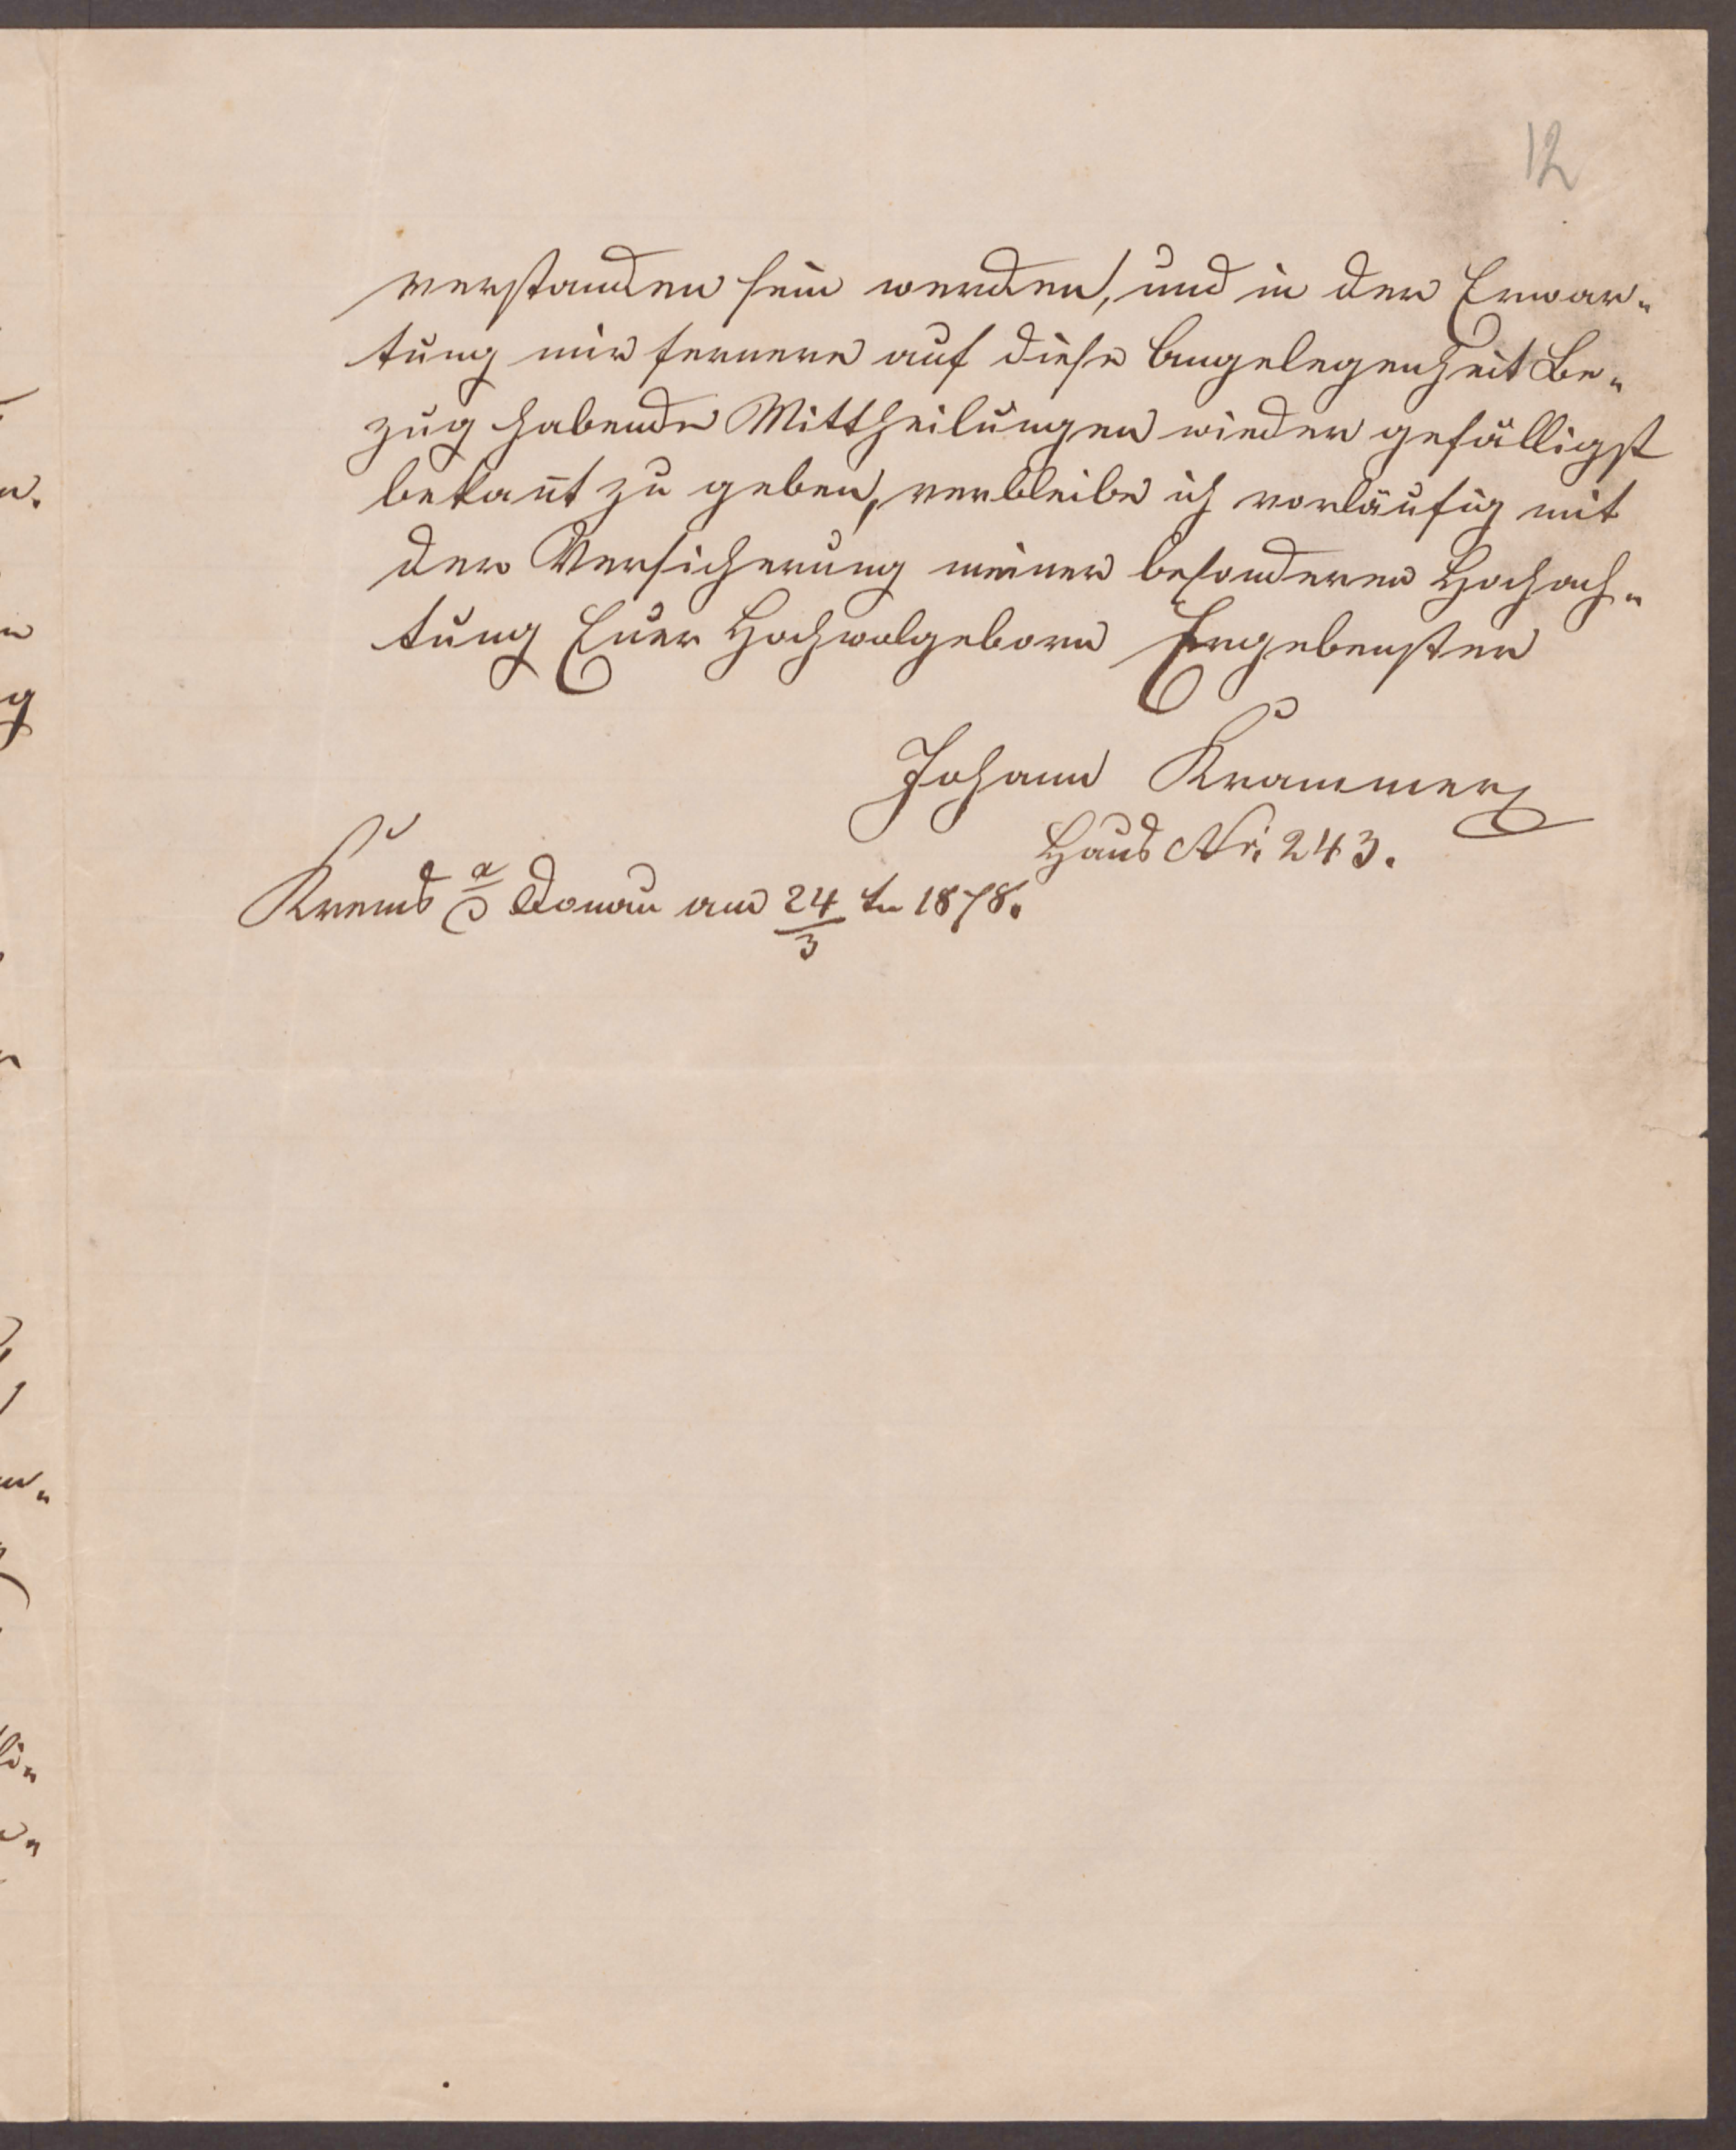 12
verstanden sein werden, und in der Erwar-
tung mir fernere auf diese Angelegenheit Be-
zug habende Mittheilungen wieder gefälligst
bekan̄t zu geben, verbleibe ich vorläufig mit
der Versicherung meiner besonderen Hochach-
tung Euer Hochwolgeborn Ergebenster
Johann Krammer
Haus Nr. 243.
Krems a/D Donau am 24/3 tn 1878.